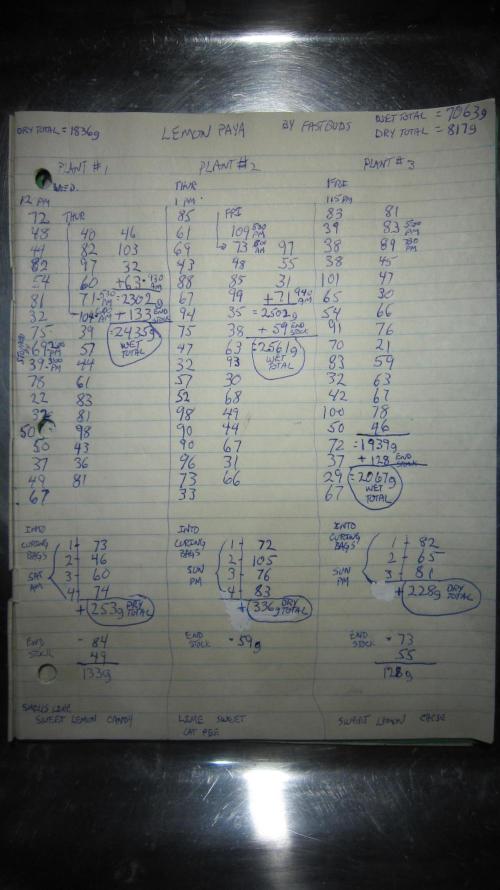 DRY TOTAL = 1836g LEMON PAYA BY FASTBUDS WET TOTAL = 7063g
DRY TOTAL = 817g
PLANT #1
WED.
12 PM
72 THUR
43 40 46
44 82 103
82 97 32
54 60 +63 - 930 AM
81 71 - 530 PM = 2302g
32 104 + 133 END STOCK
75 39 = 2435g
69 200 PM 57 WET TOTAL
39 300 PM 44
78 61
22 83
32 81
50 98
50 43
37 36
49 81
67
INTO CURING BAGS
SAT AM
1 - 73
2 - 46
3 - 60
4 - 74
+ 253g DRY TOTAL
END STOCK - 84
49
133g
SMELLS LIKE
SWEET LEMON CANDY
PLANT #2
THUR
1 PM
85 FRI
61 109 500 PM
69 73 800 AM 97
43 48 55
88 85 31
67 99 + 71 940 AM
94 35 = 2502g
75 38 + 59 END STOCK
47 63 = 2561g
32 93 WET TOTAL
57 30
52 68
98 49
90 44
90 67
96 31
73 66
33
INTO CURING BAGS
SUN PM
1 - 72
2 - 105
3 - 76
4 - 83
+ 336g DRY TOTAL
END STOCK - 59g
LIME SWEET
CAT PEE
PLANT #3
FRI
115 PM
83 81
39 83 500 PM
38 89 730 PM
38 45
101 47
65 30
54 66
91 76
70 21
83 59
32 63
42 67
100 78
50 46
72 = 1939g
37 + 128 END STOCK
29 = 2067g
67 WET TOTAL
INTO CURING BAGS
SUN PM
1 - 82
2 - 65
3 - 81
+ 228g DRY TOTAL
END STOCK - 73
55
128g
SWEET LEMON